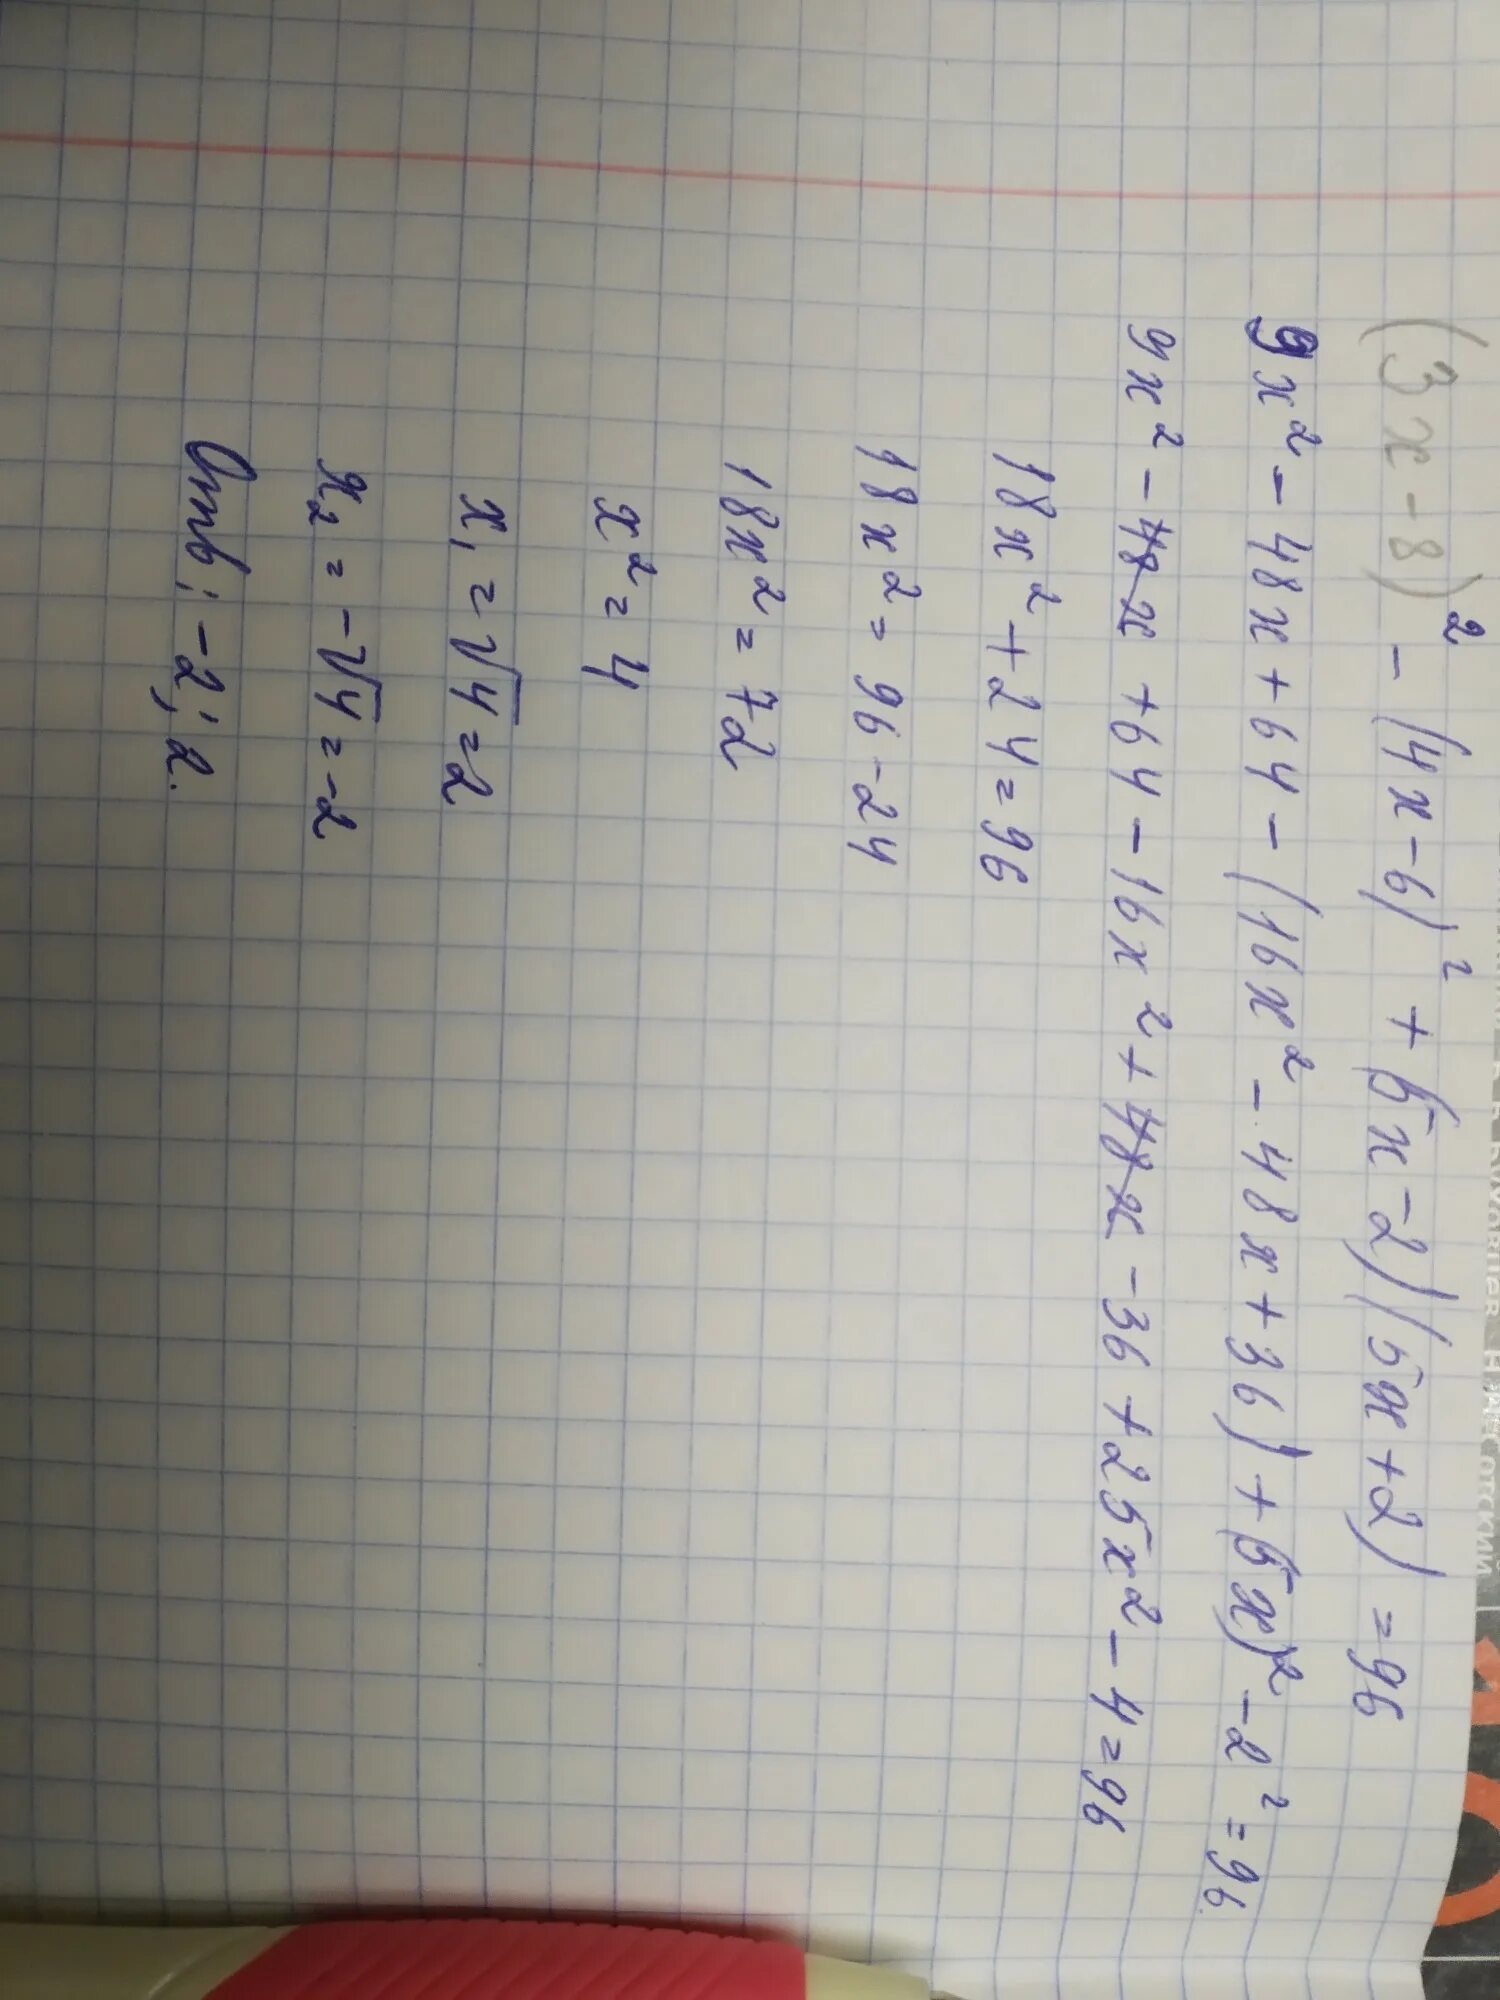 (3x-8)² - (4x-6)² + (5x-2)(5x+2) = 96
9x² - 48x + 64 - (16x² - 48x + 36) + (5x)² - 2² = 96
9x² - 48x + 64 - 16x² + 48x - 36 + 25x² - 4 = 96
18x² + 24 = 96
18x² = 96 - 24
18x² = 72
x² = 4
x₁ = √4 = 2
x₂ = -√4 = -2
Отв: -2; 2.